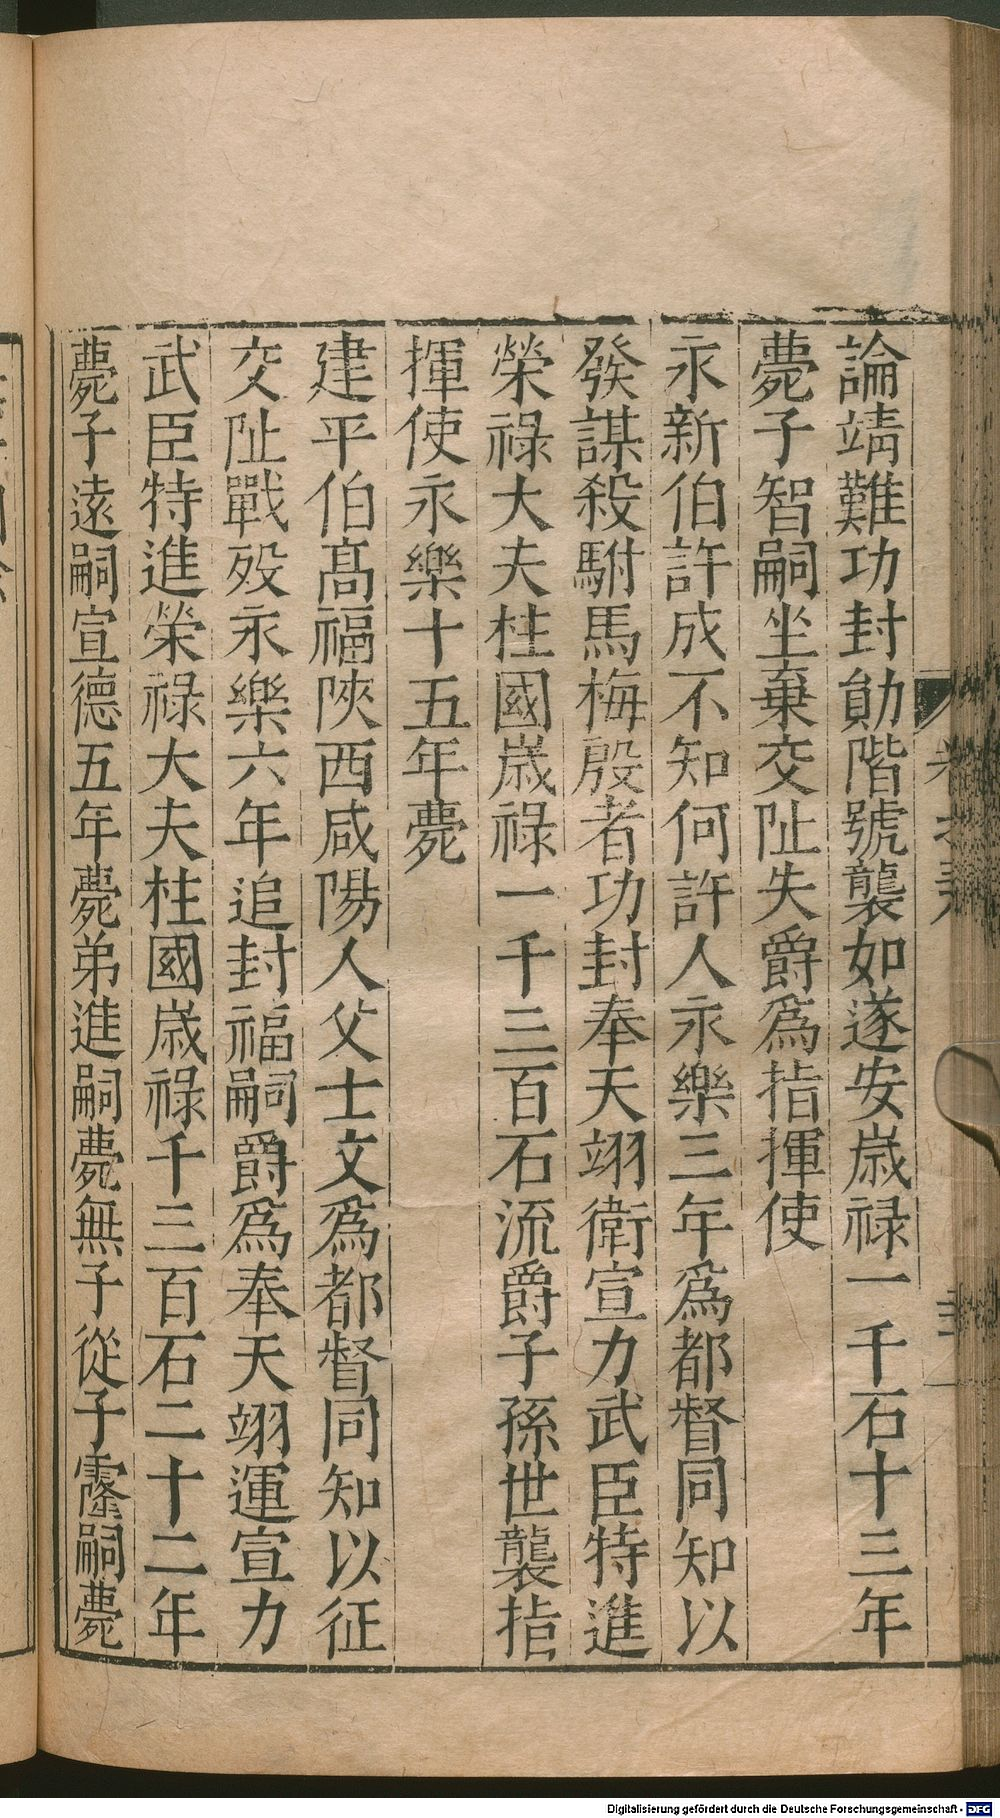 論靖難功封勛階號襲如遂安歲禄一千石十三年
薨子智嗣坐棄交阯失爵爲指揮使
永新伯許成不知何許人永樂三年爲都督同知以
發謀殺駙馬梅殷者功封奉天翊衛宣力武臣特進
榮祿大夫柱國歲祿一千三百石流爵子孫世襲指
揮使永樂十五年薨
建平伯高福陜西咸陽人父士文爲都督同知以征
交阯戰歿永樂六年追封福嗣爵爲奉天翊運宣力
武臣特進榮祿大夫柱國歲祿千三百石二十二年
薨子遠嗣宣德五年薨弟進嗣薨無子從子霳嗣薨
Digitalisierung gefördert durch die Deutsche Forschungsgemeinschaft - DFG